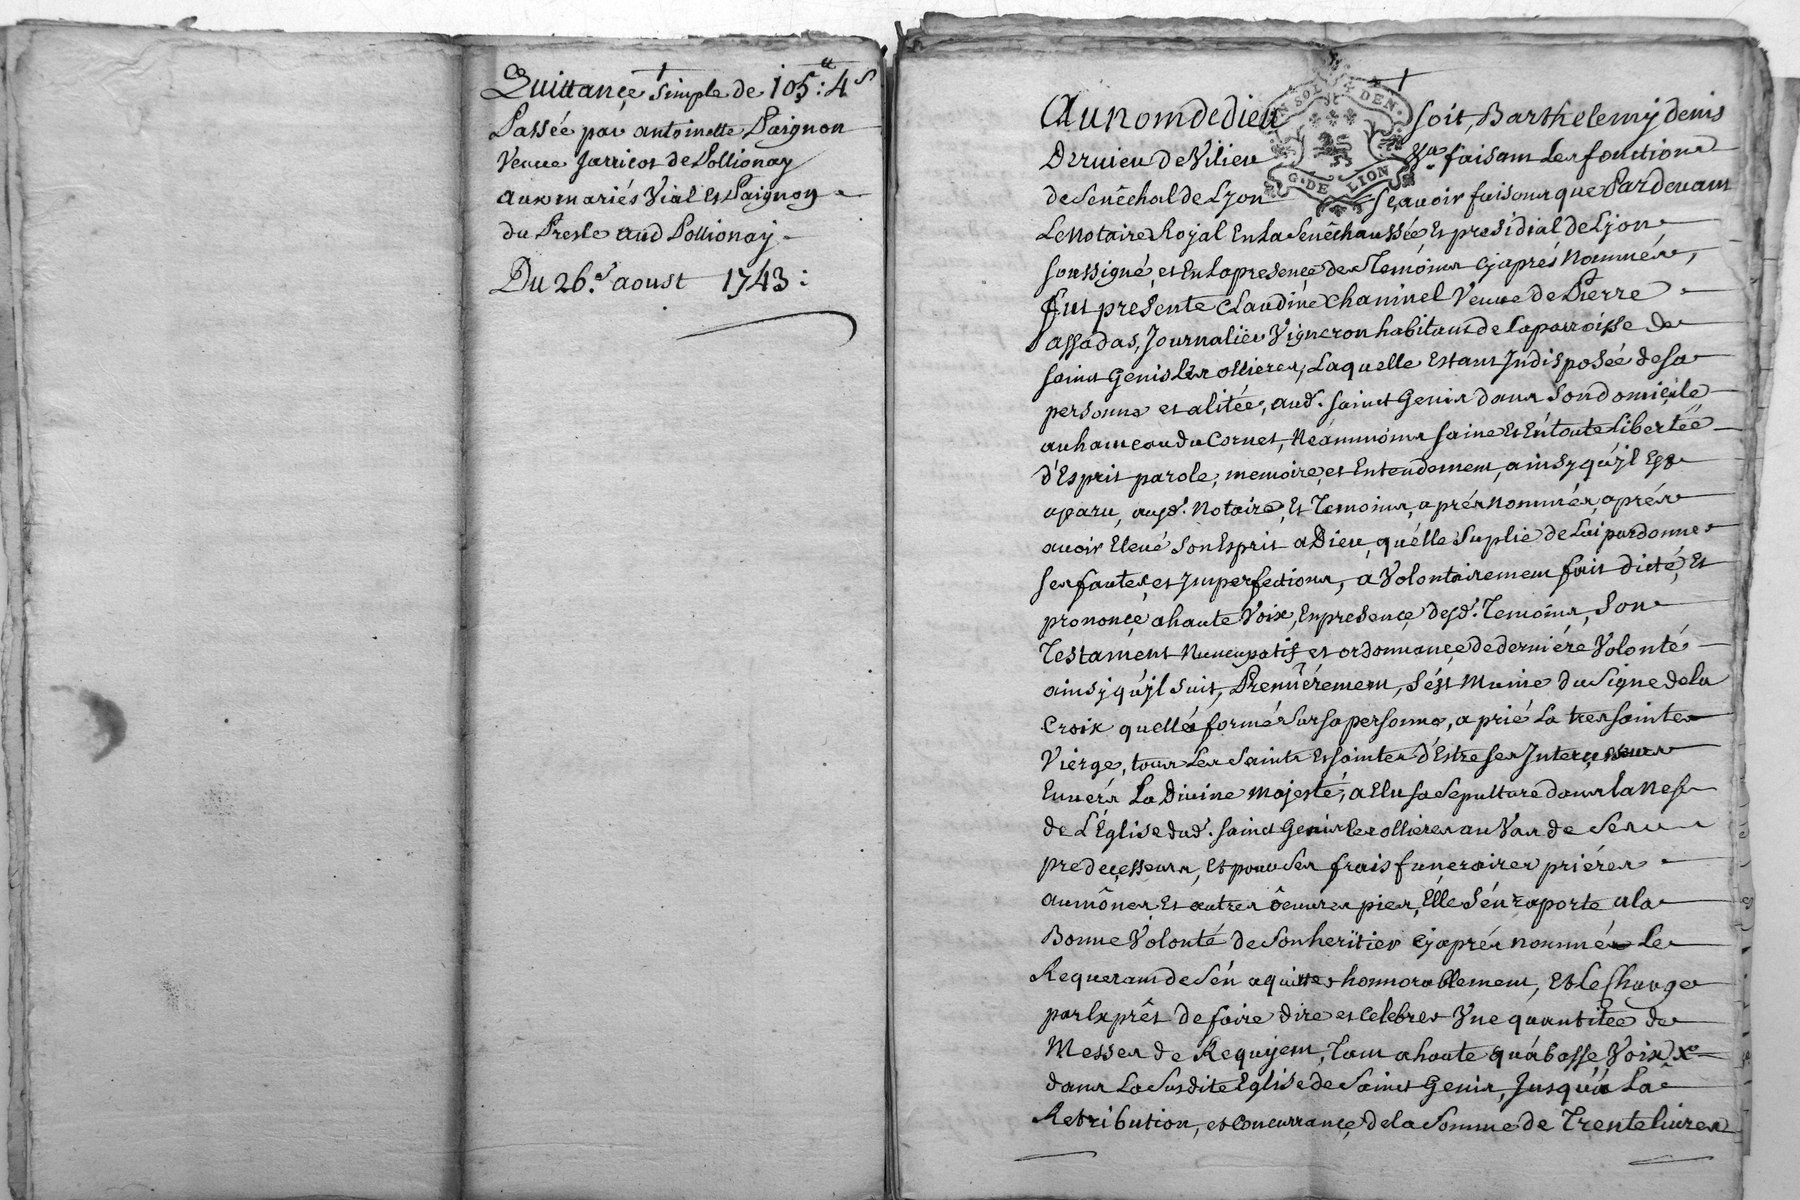 Quittançe simple de 105 ͭ ͭ : 4 s
Passée par antoinette Paignon
Veuve Jarricot de Pollionay
aux mariés Vial et Paignon
du Presle aud Pollionay
Du 26.e aoust 1743 :
Au nom de dieu soit, Barthelemy denis
Dervieu de Vilieu faisant les fonctions
de Senêchal de Lyon sçavoir faisons que Pardevant
Le Notaire Royal En La Senêchaussée et presidial de Lyon
soussigné, et En La presençe des Temoins cy après Nommés,
fut presente Claudine Chaninel Veuve de Pierre
assadas, Journalier Vigneron habitant de La parroisse de
saint Genis les ollieres, Laquelle Estant Indisposée de sa
personne et alitée, aud. saint Genis dans son domiçile
au hameau du Cornet, Neâmmoins saine et En toute Libertée
d'Esprit parole, memoire, et Entendement, ainsy qu'jl Est
aparu, auxd. Notaire, Et Temoins, aprés nommés, aprés
avoir Elevé son Esprit a Dieu, qu'elle suplie de Lui pardonner
ses fautes, et Jmperfections, a Volontairement fait dicté, Et
prononçe a haute Voix, En presençe desd. Temoins, son
Testament Nuncupatif et ordonnançe de derniére Volonté
ainsy qu'jl suit, Premiérement, s'est Munie du signe de la
Croix quelle a formé sur sa personne, a prié La tres sainte
Vierge, tous Les saints Et saintes d'Estre ses Intercesseurs
Envérs La Divine Majesté, a Elu sa sepulture dans la Nef
de L'Eglise dud. saint Genis les ollieres au Vas de ses
predeçesseurs, Et pour ses frais funeraires priéres
aumônes Et autres ôeuvres pies, Elle s'en raporte a la
Bonne Volonté de son heritier cy aprés nommé Le
Requerant de s'en aquitter honnorablement, Et le Charge
par Exprês de faire dire et Celebrer Vne quantitée de
Messes de Requiem, Tant a haute qu'a basse Voix
dans La susdite Eglise de saint Genis, Jusqu'a La
Retribution, et Concurrançe de la somme de Trente livres
G. DE LION